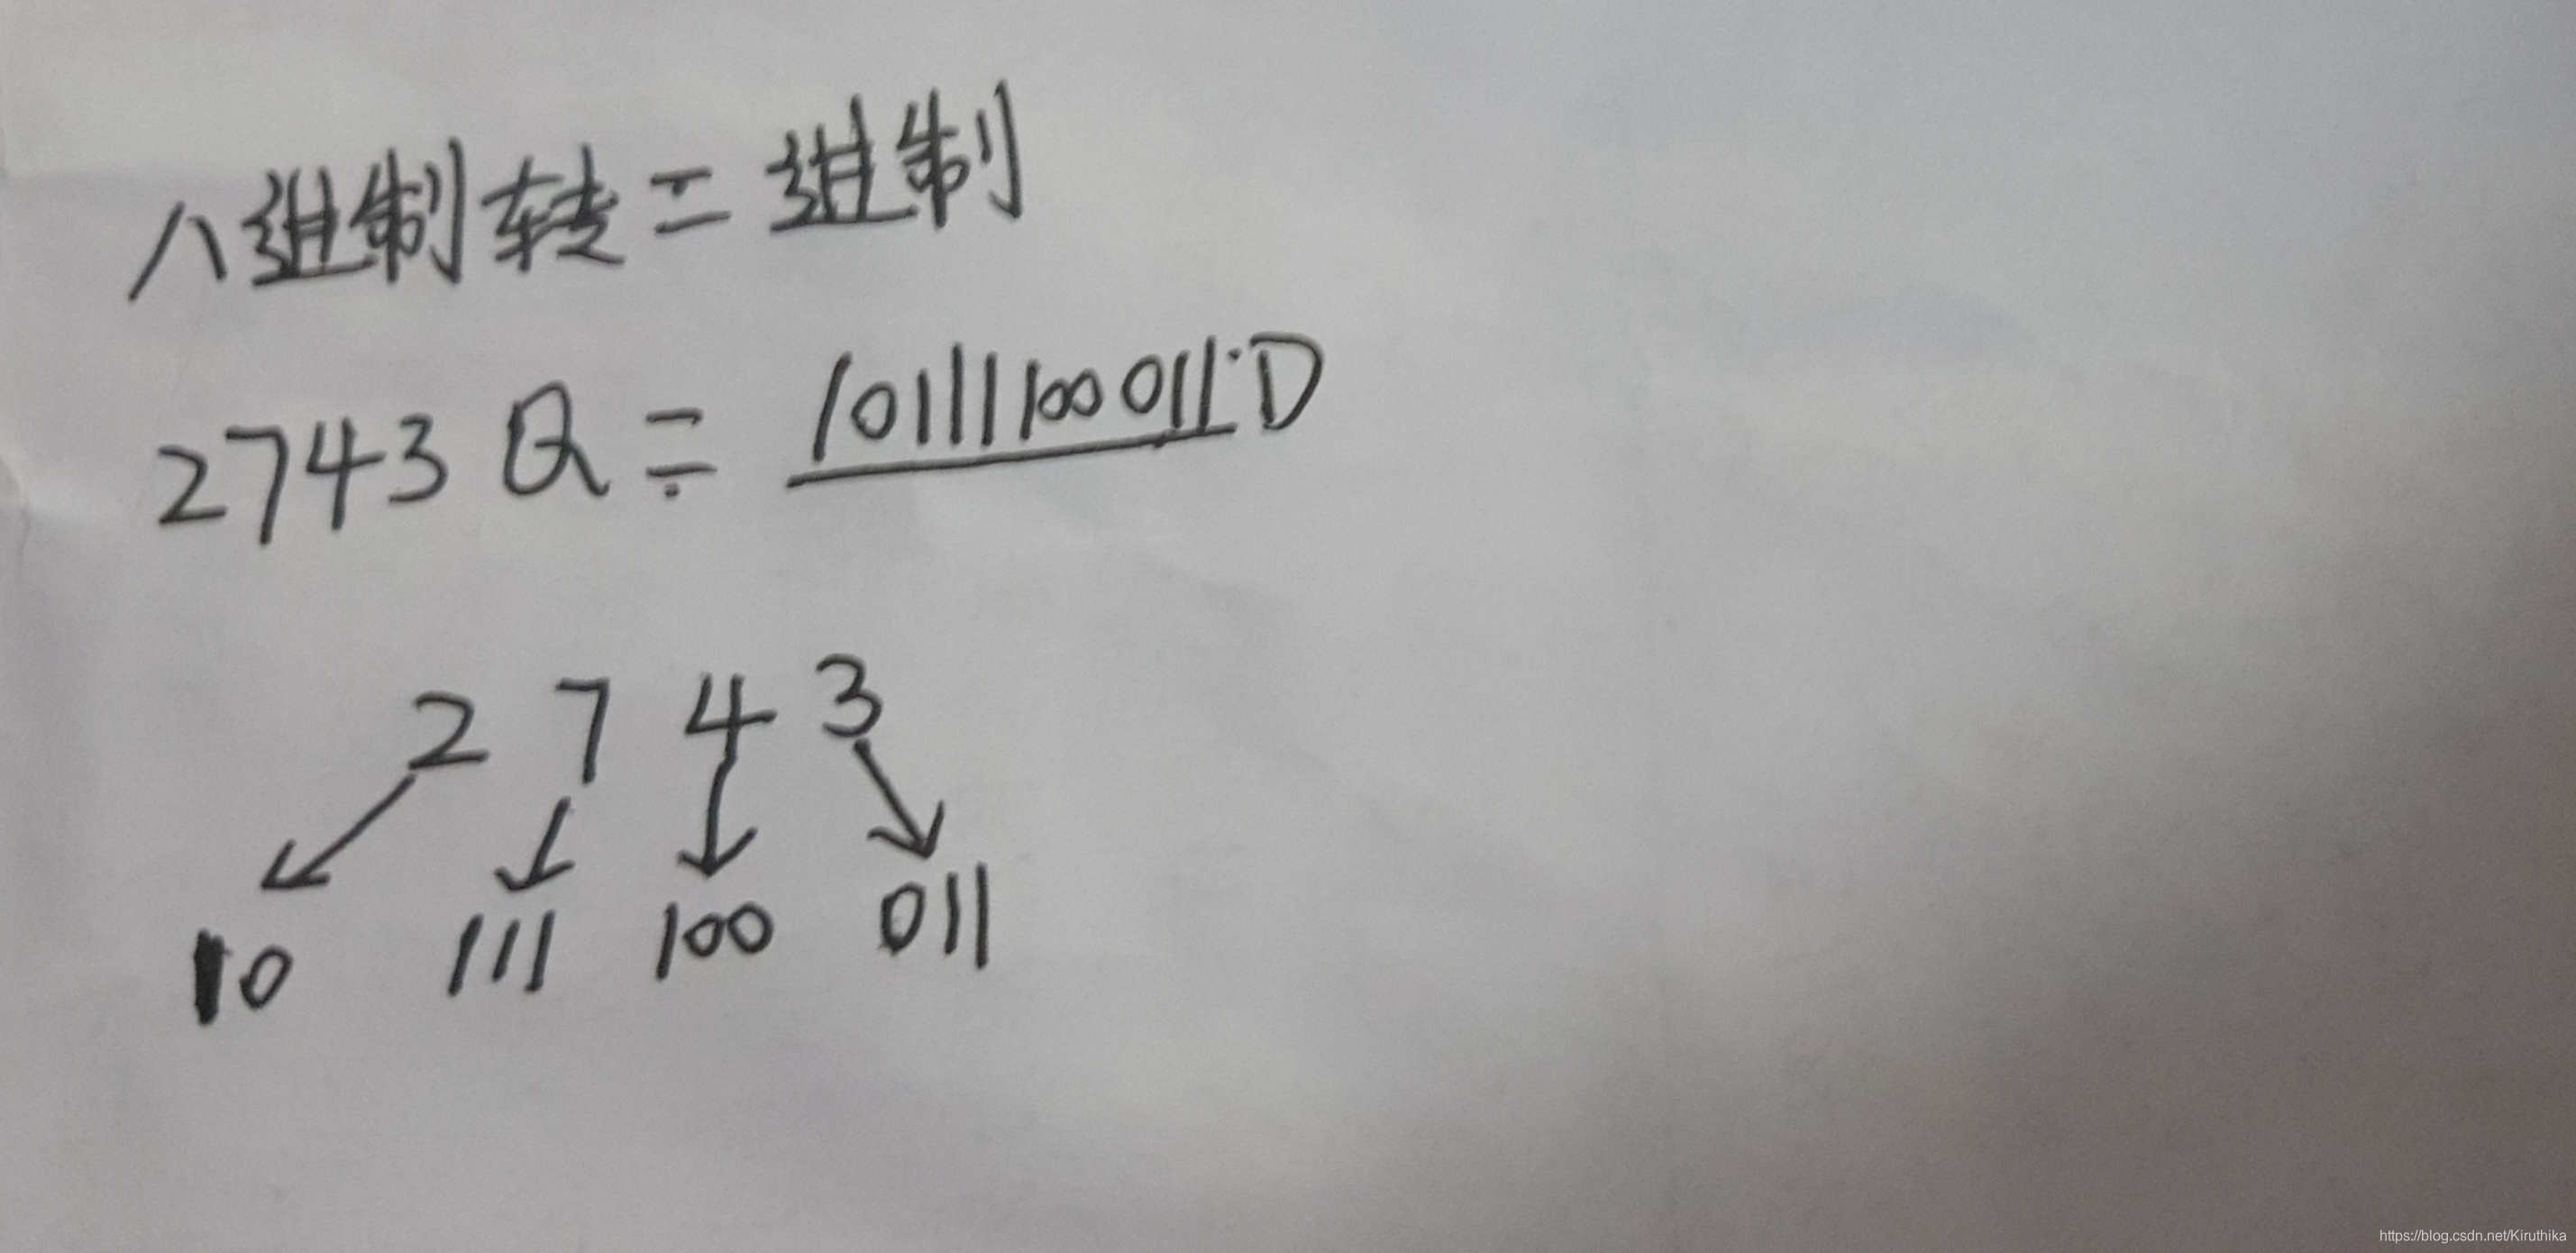 八进制转二进制
2743 Q = 10111100011 D
2 7 4 3
10 111 100 011
https://blog.csdn.net/Kiruthika